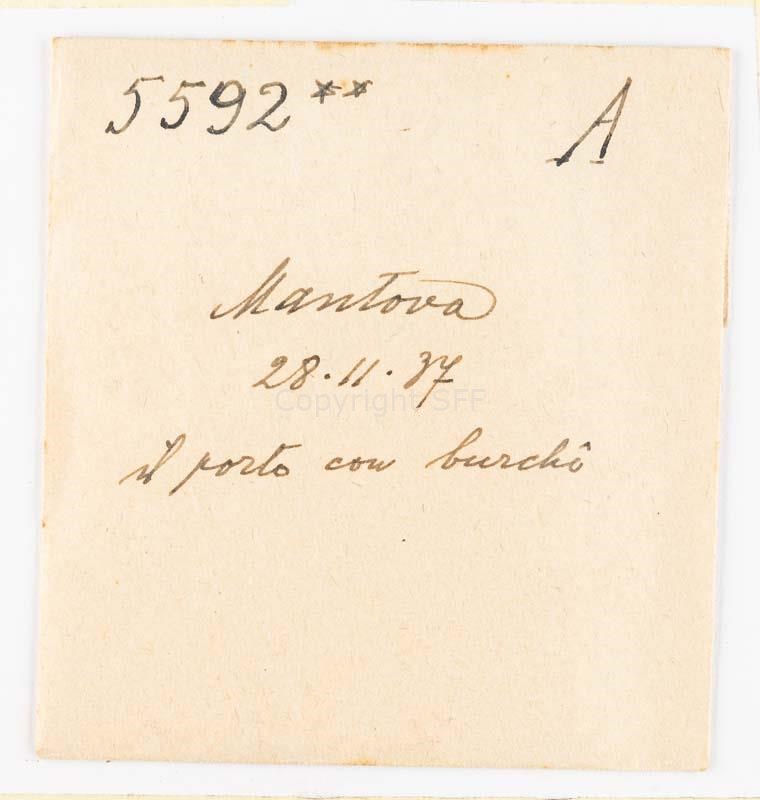 5592** A
Mantova
28.11.37
Copyright SFF
il porto con burchî